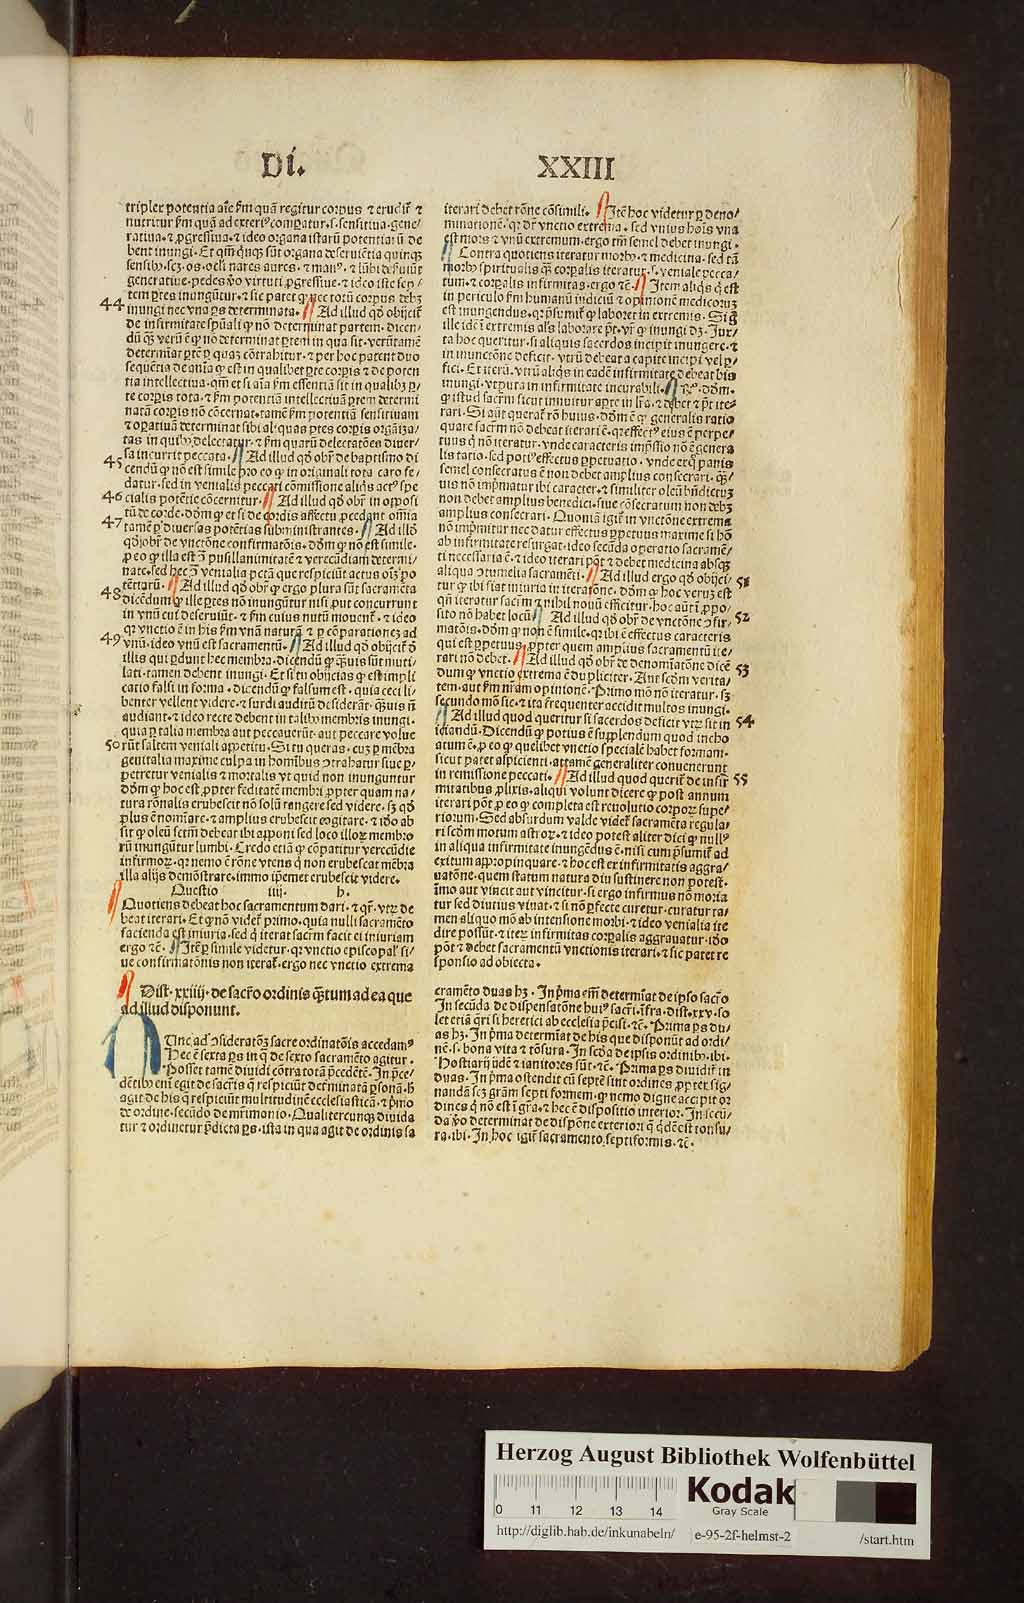 Di. XXIII
triplex potentia aīe ẜm quā regitur corpus ⁊ erudit̄ ⁊
nutritur ẜm quā ad exteri⁹ comparatur.s.sensitiua.gene/
ratiua.⁊ ꝓgressiua.⁊ ideo organa istarū potentiarū de
bent inungi. Et qm̄ qͥnqꝫ sūt organa deseruiētia quinqꝫ
sensibꝰ.scꝫ.os.oclī nares aures.⁊ manꝰ.⁊ lūbi deſuiūt
generatiue.pedes ꝟo virtuti ꝓgressiue.⁊ ideo iste sep/
tem ꝑtes inungūtur.⁊ sic patet ꝙ nec totū corpus debꝫ
44 inungi nec vna ꝑs determinata. Ad illud qd̄ obijcit̄
de infirmitate spūali ꝙ nō determinat partem. dicen/
dū qꝫ verū ē ꝙ nō determinat ꝑtem in qua sit. verūtamē
determiat ꝑtē ꝑ quaꝫ cōtrahitur.⁊ per hoc patent duo
sequētia de anīa ꝙ est in qualibet ꝑte corꝑis ⁊ de poten
tia intellectiua. qm̄ et si aīa ẜm essentiā sit in qualibꝫ ꝑ/
te corꝑis tota.⁊ ẜm potentiā intellectiuā ꝑtem determi
natā corꝑis nō cōcernat. tamē ẜm potentiā sensitiuam
⁊ oꝑatiuā determinat sibi alˈquas ꝑtes corꝑis organiza/
tas in quibꝰ delectatur.⁊ ẜm quarū delectatōem diuer/
sa incurrit peccata. Ad illud qd̄ obr̄ de baptismo di
45 cendū ꝙ nō est simile ꝓ eo ꝙ in originali tota caro fe/
datur. sed in venialis peccati cōmissione aliqͥs actꝰ spe
46 cialis potētie cōcernitur. Ad illud qd̄ obr̄ in opposi
tū de corde. dōm ꝙ et si de cordis affectu ꝓcedant om̄ia
47 tamē ꝑ diuersas potētias subministrantes. Ad illd̄
qd̄ obr̄ de vnctōne confirmatōis. dōm ꝙ nō est simile.
ꝓ eo ꝙ illa est ꝯ pusillanimitatē ⁊ verecūdiam determi/
nate. sed hec ꝯ venialia pctā que respiciūt actus oīꝫ po
tētiarū. Ad illud qd̄ obr̄ ꝙ ergo plura sūt sacramēta
48 dicēdum ꝙ ille ꝑtes nō inungūtur nisi ꝓut concurrunt
in vnū cui deseruiūt.⁊ ẜm cuius nutū mouent̄.⁊ ideo
qꝛ vnctio ē in his ẜm vnā naturā ⁊ ꝑ cōparationeꝫ ad
49 vnū. ideo vnū est sacramentū. Ad illud qd̄ obijcit̄ ð
illis qui ꝑdunt hec membra. dicendū ꝙ qͣuis sūt muti/
lati. tamen debent inungi. Et si tu obijcias ꝙ est impli
catio falsi in forma. dicendū ꝙ falsum est. quia ceci li/
benter vellent videre.⁊ surdi auditū desiderāt. qͣuis n̄
audiant.⁊ ideo recte debent in talibꝰ membris inungi.
quia ꝑ talia membra aut peccauerūt. aut peccare volue
50 rūt saltem veniali appetitu. Si tu queras. cuꝫ ꝑ mēbra
genitalia maxime culpa in homībus ꝯtrahatur siue ꝑ/
petretur venialis ⁊ mortalis vt quid non inunguntur
dōm ꝙ hoc est ꝓpter feditatē membri ꝓpter quam na/
tura rōnalis erubescit nō solū tangere sed videre. sꝫ qd̄
ꝑlus ē noīare.⁊ amplius erubescit cogitare.⁊ iđo ab
sit ꝙ oleū sctm̄ debeat ibi apponi sed loco illoꝝ membro
rū inungūtur lumbi. Credo etiā ꝙ cōpatitur verecūdie
infirmoꝝ. qꝛ nemo ē rōne vtens qͥ non erubescat mēbra
illa alijs demōstrare. immo ip̄emet erubescit videre.
Questio iiij. h.
Quotiens debeat hoc sacramentum dari.⁊ qr̄. vtꝝ de
beat iterari. Et ꝙ nō videt̄ primo. quia nulli sacramēto
facienda est iniuria. sed qͥ iterat sacr̄m facit ei iniuriam
ergo ⁊c̄. Itēꝫ simile videtur. qꝛ vnctio episcopalˈ si/
ue confirmatōnis non iterat̄. ergo nec vnctio extrema
iterari debet rōne cōsimili. Itē hoc videtur ꝑ deno/
minationē. qꝛ dr̄ vnctio extrema. sed vnius hoīs vna
est mors ⁊ vnū extremum. ergo tm̄ semel debet inungi.
Contra quotiens iteratur morbꝰ.⁊ medicina. sed tā
morbꝰ spiritualis qͣ corꝑalis iteratur.s.veniale pecca/
tum.⁊ corꝑalis infirmitas. ergo ⁊c̄. Item aliqͥs qͥ est
in periculo ẜm humanū iudiciū ⁊ opinionē medicoruꝫ
est inungendus. qꝛ p̄sumit̄ ꝙ laboret in extremis. Si g̊
ille idē in extremis alˈs laborare pt̄. vr̄ ꝙ inungi dꝫ. Jux/
ta hoc queritur. si aliquis sacerdos incipit inungere.⁊
in inunctōne deficit. vtrū debeat a capite incipi vel ꝑ/
fici. Et iterū. vtrū aliqͥs in eadē infirmitate debeat bis
inungi. vt puta in infirmitate incurabili. Rˢ. dōm.
ꝙ istud sacr̄m sicut innuitur aꝑte in lr̄a.⁊ debet ⁊ pt̄ ite/
rari. Si aūt querat̄ rō huius. dōm ē ꝙ generalis ratio
quare sacr̄m nō debeat iterari ē. qꝛ effectꝰ eius ē perpe/
tuus qͥ nō iteratur. vnde caracteris imp̄ssio nō ē genera
lis ratio. sed potiꝰ effectus ꝑpetuatio. vnde ergͦ panis
semel consecratus ē non debet amplius consecrari. qͣ/
uis nō imp̄matur ibi caracter.⁊ similiter oleū bn̄dictuꝫ
non debet amplius benedici. siue cōsecratum non debꝫ
amplius consecrari. Quoniā igit̄ in vnctōne extrema
nō imp̄mitur nec datur effectus ꝑpetuus maxime si hō
ab infirmitate resurgat. ideo secūda oꝑatio sacramē/
ti necessaria ē.⁊ ideo iterari pōt ⁊ debet medicina absqꝫ
aliqua ꝯtumelia sacramēti. Ad illud ergo qd̄ obijci/ 51
tur ꝙ ibi fiat iniuria in iteratōne. dōm ꝙ hoc veruꝫ est
qn̄ iteratur sacr̄m ⁊ nihil nouū efficitur. hoc aūt ī ꝓpo/
sito nō habet locū. Ad illud qd̄ obr̄ de vnctōne ꝯfir/ 52
matōis. dōm ꝙ non ē simile. qꝛ ibi ē effectus caracteris
qui est ꝑpetuus. ꝓpter quem amplius sacramentū ite/
rari nō debet. Ad illud qd̄ obr̄ de denomīatōne dicē 53
dum ꝙ vnctio extrema ē dupliciter. Aut scdm̄ verita/
tem. aut ẜm nr̄am opinionē. Primo mō nō iteratur. sꝫ
secundo mō sic.⁊ ita frequenter accidit multos inungi.
Ad illud quod queritur si sacerdos deficit vtꝝ sit in 54
choandū. Dicendū ꝙ potius ē supplendum quod incho
atum ē. ꝓ eo ꝙ quelibet vnctio specialē habet formam.
sicut patet aspicienti. attamē generaliter conuenerunt
in remissione peccati. Ad illud quod querit̄ de infir 55
mitatibus ꝓlixis. aliqui volunt dicere ꝙ post annum
iterari pōt. ꝓ eo ꝙ completa est reuolutio corpoꝝ supe/
riorum. Sed absurdum valde videt̄ sacramēta regula/
ri scdm̄ motum astroꝝ.⁊ ideo potest aliter dici ꝙ nullꝰ
in aliqua infirmitate inungēdus ē. nisi cum p̄sumit̄ ad
exitum appropinquare.⁊ hoc est ex infirmitatis aggra/
uatōne. quem statum natura diu sustinere non potest.
īmo aut vincit aut vincitur. si ergo infirmus nō moria
tur sed diutius viuat.⁊ si nō ꝑfecte curetur. curatur ta/
men aliquo mō ab intensione morbi.⁊ ideo venialia ite
dire possūt.⁊ iteꝝ infirmitas corꝑalis aggrauatur. iđo
pōt ⁊ debet sacramentū vnctionis iterari.⁊ sic patet re
sponsio ad obiecta.
Dist. xxiiij. de sacr̄o ordinis qͣtum ad ea que
ad illud disponunt.
Unc ad ꝯsideratōꝫ sacre ordinatōis accedamꝰ
Hec ē sexta ꝑs in qͣ de sexto sacramēto agitur.
Posset tamē diuidi cōtra totā p̄cedētē. In p̄ce/
dētibꝰ em̄ egit de sacr̄is qͥ respiciūt determinatā ꝑsonā. h̄
agit de his qͥ respiciūt multitudinē ecclesiasticā.⁊ p̄mo
de ordine. secūdo de mr̄imonio. Qualitercunqꝫ diuida
tur ⁊ ordinetur p̄dicta ꝑs. ista in qua agit de ordinis sa
cramēto duas hꝫ. In p̄ma em̄ determīat de ipso sacr̄o
In secūda de dispensatōne huiꝰ sacri. īfra. dist. xxv. so
let etiā qͥri si heretici ab ecclesia p̄cisi.⁊c̄. Prima ꝑs du/
as hꝫ. In p̄ma determīat de his que disponūt ad ordi/
nē.s.bona vita ⁊ tōsura. In scd̄a de ipsis ordinibꝰ. ibi.
Hostiarij iidē ⁊ ianitores sūt.⁊c̄. Prima ꝑs diuidit̄ in
duas. In p̄ma ostendit cū septē sint ordines ꝓpter sig/
nandā scꝫ grām septiformem. ꝙ nemo digne accipit or
dines qͥ nō est ī gr̄a.⁊ hec ē dispositio interior. In secū/
da ꝟo determinat de dispōne exteriori q̄ qͥdē est tonsu/
ra. ibi. In hoc igit̄ sacramento septiformis.⁊c̄.
Herzog August Bibliothek Wolfenbüttel
0 11 12 13 14
Kodak
Gray Scale
http://diglib.hab.de/inkunabeln/ e-95-2f-helmst-2 /start.htm